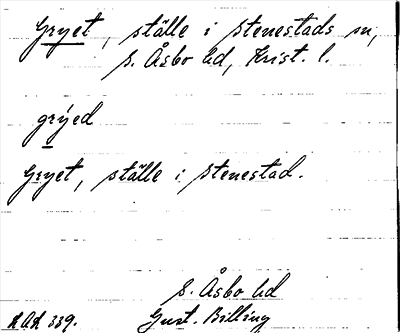 Gryet, ställe i Stenestads sn,
S. Åsbo hd, Krist. l.
grýed
Gryet, ställe i Stenestad.
S. Åsbo hd
Gust. Billing
339.